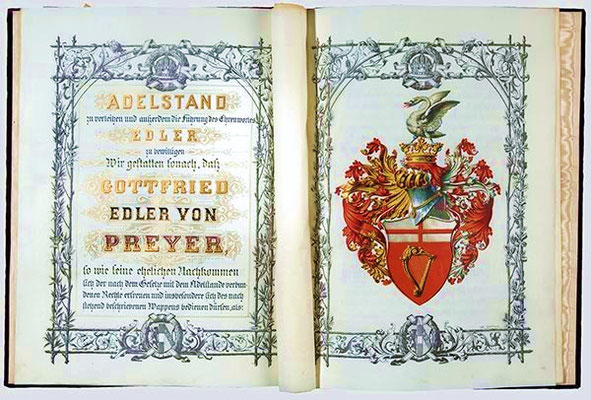 ADELSTAND
zu verleihen und außerdem die Führung des Ehrenwortes
EDLER
zu bewilligen
Wir gestatten sonach, daß
GOTTFRIED
EDLER VON
PREYER,
so wie seine ehelichen Nachkommen
sich der nach dem Gesetze mit dem Adelstande verbun-
denen Rechte erfreuen und insbesondere sich des nach
stehend beschriebenen Wappens bedienen dürfen, als: